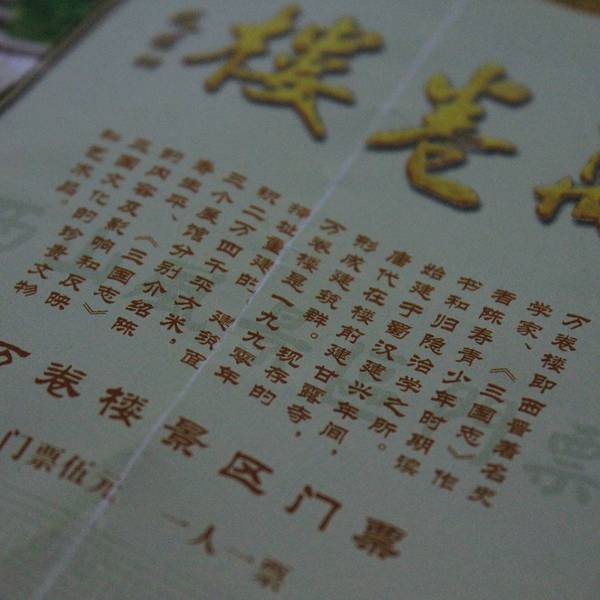 卷楼
万卷楼即西晋著名史
学家、《三国志》作
者陈寿青少年时期读
书和归隐治学之所。
始建于蜀汉建兴年间，
唐代在楼前建甘露寺，
形成建筑群。现存的
万卷楼是一九九零年
择址重建的，建筑面
积二万四千平方米，
三个展馆分别介绍陈
寿生平、《三国志》
的内容及影响和反映
三国文化的珍贵文物
和艺术品。
万卷楼景区门票
门票伍元
一人一票